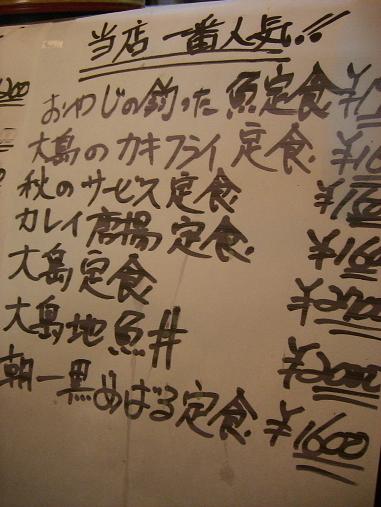 当店一番人気!!
おやじの釣った魚定食 ¥1
大島のカキフライ定食 ¥16
秋のサービス定食 ¥12
カレイ唐揚定食 ¥160
大島定食 ¥2700
大島地魚丼 ¥2000
朝一黒めばる定食 ¥1600